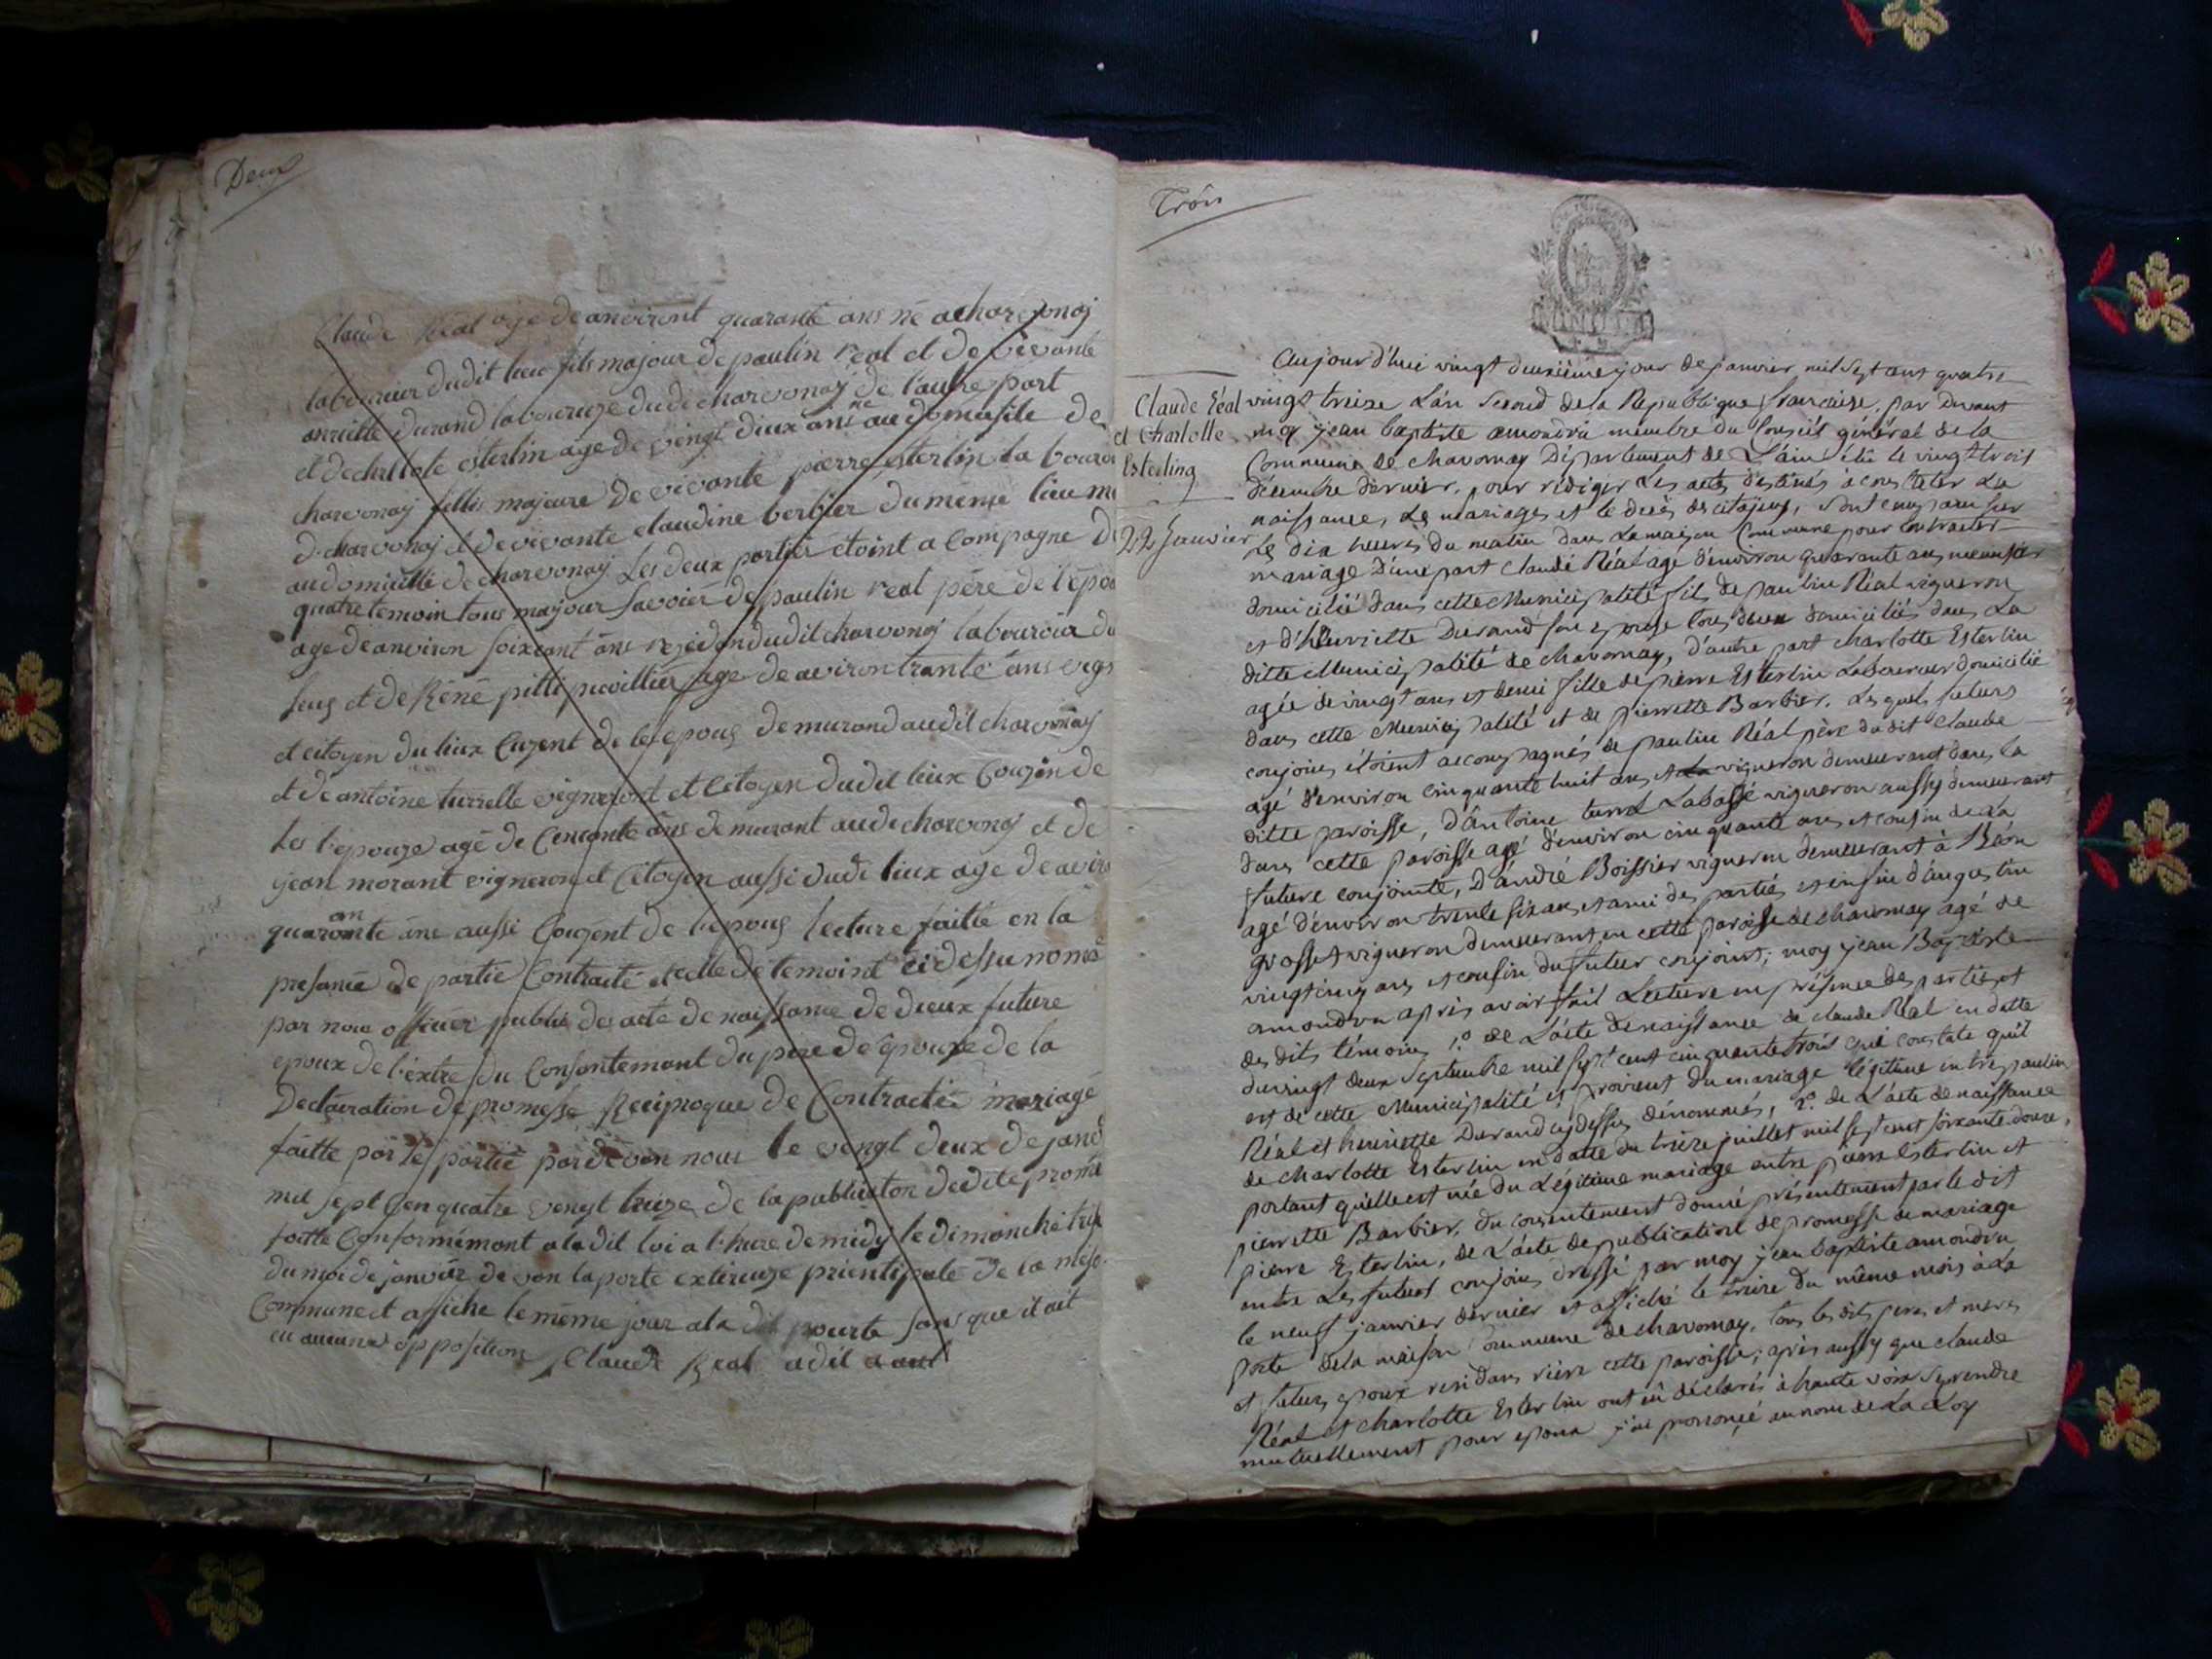 Deux
Claude Réal age de anviront quarante ans né a charvonaj
laboureur dudit lieu fils majour de paulin real et de vivante
anriette durand laboureuze dudi charvonaj de l'autre part
et de charlote esterlin age de vingt deux ans née au domicile de
charvonaj fillis majeure de vivante pierre esterlin la bourou
d. charvonaj et de vivante claudine berbier du même lieu
au domicille de charvonaj Les deux parties étoint a Compagne
quatre temoin tous majour savoier de paulin real père de l'épou
age de anviron soixcent ans residen dudit charvonaj labouroir
et de Réné pitti age de aviron trante ans
et citoyen du liux Cuzent de les epous demurand audit charvonay
et de antoine turrelle vigneront et Citoyen dudit liux Couzin de
les l'epouze agé de Cencante ans demurant audi charvonaj et de
jean morant vigneron et Citoyen aussi dudi liux age de aviro
quarante ans aussi Couzent de l'epous lecture faitte en la
presance de partie Contracté et celle de temoint ci dessu nomé
par nous officier public des acte de naissance de dieux future
epoux de l'extre du Consentemant du pere de l'epouze de la
Declaration de promesse Reciproque de Contracter mariage
faitte par le partie pardevan nous le vengt deux de janv
mil sept sen quatre vengt treize de la publication de dite prome
faitte Conformémont a la dit loi a l'hure de midy le dimanche treiz
du moi de janvier de van la porte extereuze prientipale de la mezo
Commune et affiche le même jour a la dit pourte sans que il ait
eu aucune opposition Claude Real a dit
Trois
Claude Réal
et Charlotte
Esterling
22 Janvier
Aujourd'hui vingt deuxième jour de janvier mil Sept cent quatre
vingt treize L'an Second de la République française, par devant
moy jean baptiste amondru membre du Conseil général de la
Commune de chavornay Département de L'ain élu le vingt trois
décembre dernier, pour rédiger Les actes destinés à constater La
naissance, Les mariages et le décès des citoyens, sont comparu sur
les dix heures du matin dans La maison Commune pour contracter
mariage d'une part Claude Réal agé d'environ quarante ans
domicilié dans cette Municipalité fils de paulin Réal vigneron
et d'henriette Durand son epouse tous deux domiciliés dans La
ditte Municipalité de chavornay, d'autre part charlotte Esterlin
agée de vingt ans et demi fille de pierre Esterlin Laboureur domicilié
dans cette Municipalité et de pierrette Barbier. Les quels futurs
conjoins étoient accompagnés de paulin Réal père du dit Claude
agé d'environ cinquante huit ans vigneron demeurant dans la
ditte paroisse, d'Antoine turrel Labassé vigneron aussy demeurant
dans cette paroisse agé d'environ cinquante ans et cousin de La
future conjointe, D'andré Boissier vigneron demeurant à Béon
agé d'environ trente six ans et ami des parties et enfin d'augustin
grosset vigneron demeurant en cette paroisse de chavornay agé de
vingt cinq ans et cousin du futur conjoint; moy jean Baptiste
amondru après avoir fait Lecture en présence des parties et
des dits témoins 1.° de L'acte de naissance de claude Réal en datte
du vingt deux Septembre mil sept cent cinquante trois qui constate qu'il
est de cette Municipalité et provient du mariage légitime entre paulin
Réal et henriette Durand cy dessus dénommés, 2.° de L'acte de naissance
de charlotte Esterlin en datte du treize juillet mil sept cent soixante douze,
portant qu'elle est née du Légitime mariage entre pierre Esterlin et
pierrette Barbier, du consentement donné présentement par le dit
pierre Esterlin, de L'acte de publication de promesse de mariage
entre Les futurs conjoins dressé par moy jean baptiste amondru
le neuf janvier dernier et affiché le treize du même mois à La
porte de la maison Commune de chavornay, tous les dits peres et meres
et futurs epoux residans riere cette paroisse; après aussy que claude
Réal et Charlotte Esterlin ont eû déclarés à haute voix Se prendre
mutuellement pour epoux j'ai prononcé au nom de La Loy